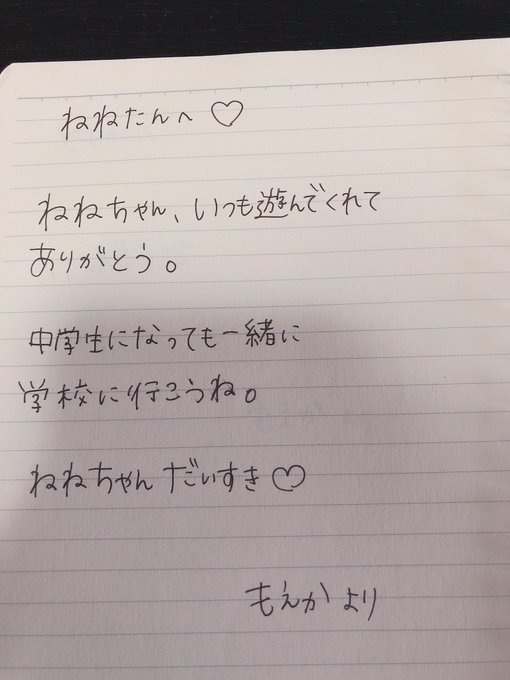 ねねたんへ♡
ねねちゃん、いつも遊んでくれて
ありがとう。
中学生になっても一緒に
学校に行こうね。
ねねちゃんだいすき♡
もえかより